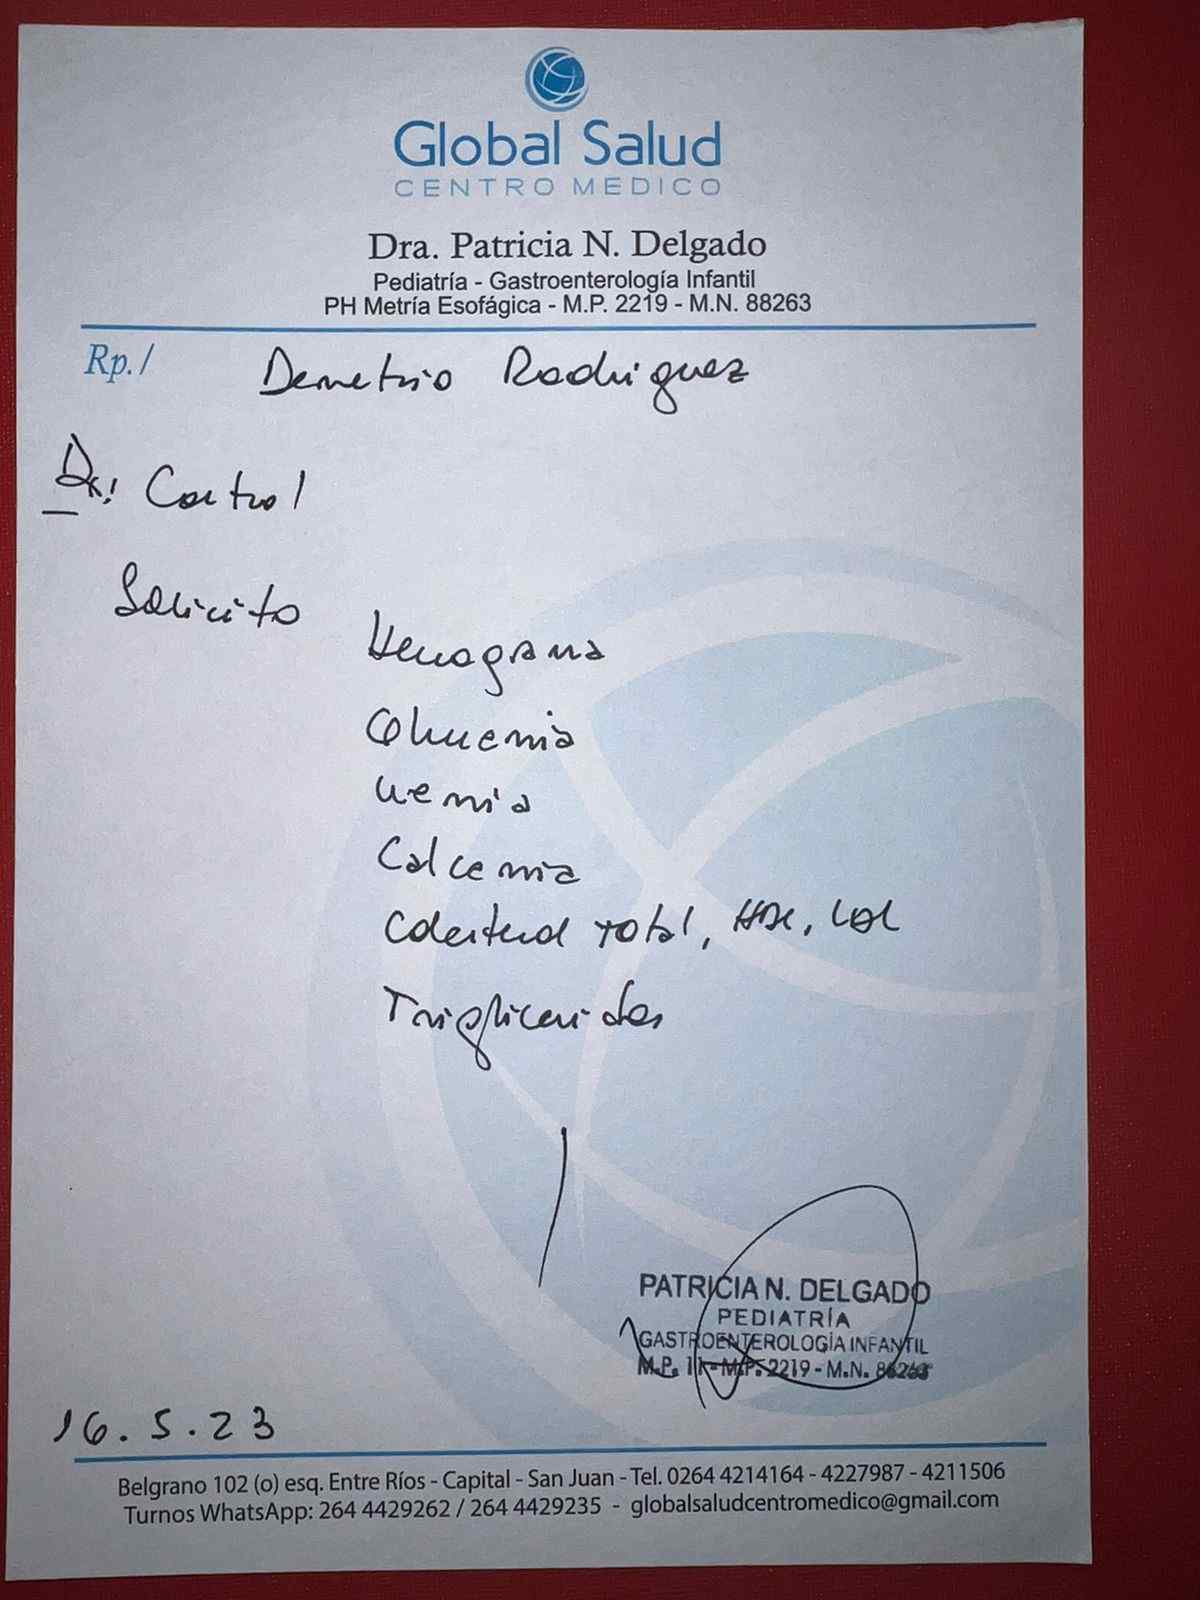 Global Salud
CENTRO MEDICO
Dra. Patricia N. Delgado
Pediatría - Gastroenterología Infantil
PH Metría Esofágica - M.P. 2219 - M.N. 88263
Rp./ Demetrio Rodriguez
Dx: Control
Solicito
Hemograma
Glucemia
Uremia
Calcemia
Colesterol Total, HDL, LDL
Trigliceridos
PATRICIA N. DELGADO
PEDIATRÍA
GASTROENTEROLOGÍA INFANTIL
M.P. 2219 - M.N.
16.5.23
Belgrano 102 (o) esq. Entre Ríos - Capital - San Juan - Tel. 0264 4214164 - 4227987 - 4211506
Turnos WhatsApp: 264 4429262 / 264 4429235 - globalsaludcentromedico@gmail.com